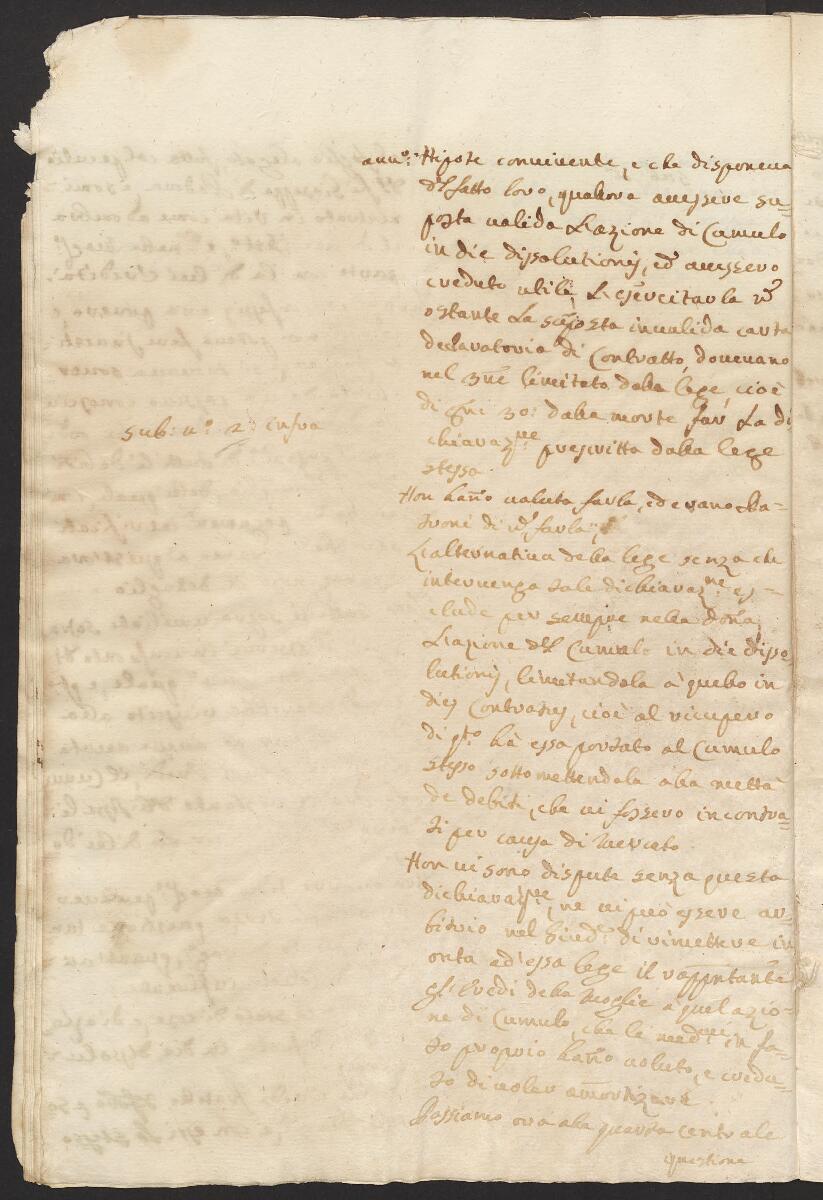 annõ: Nipote convivente, e che disponeva
dl fatto loro, qualora avessere su=
posta valida L'azione di Cumulo
in die dissolutionis, ed avessero
creduto utile L'esercitarla nõ
ostante La supposta invalida carta
declaratoria di Contratto, dovevano
nel limitato dalla lege, cioè
di gni 30: dalla morte far La di
chiarazne prescritta dalla lege
stessa.
sub: n.° 2: infra
Non hañno voluta farla, ed erano Pa=
troni di nõ farla;
L'alternativa della lege senza che
intervenga tale dichiarazne es=
clude per sempre nella doña
L'azione dl Cumulo in die disso
lutionis, limitandola à quello in
dies Contratus, cioè al ricupero
di qto hà essa portato al Cumulo
stesso sottomettendola alla mettà
de debiti, che vi fossero incontra=
ti per causa di Mercato.
Non vi sono dispute senza questa
dichiarazne, ne vi può essere ar=
bitrio nel Giude di rimettere in
onta ad essa lege il rapp̃ntante
gl'Eredi della Moglie a quel azio=
ne di Cumulo, che le medme in fa=
to proprio hañno voluto, e credu=
to di voler am̃ortizare.
Passiamo ora alla quarta centrale
questione